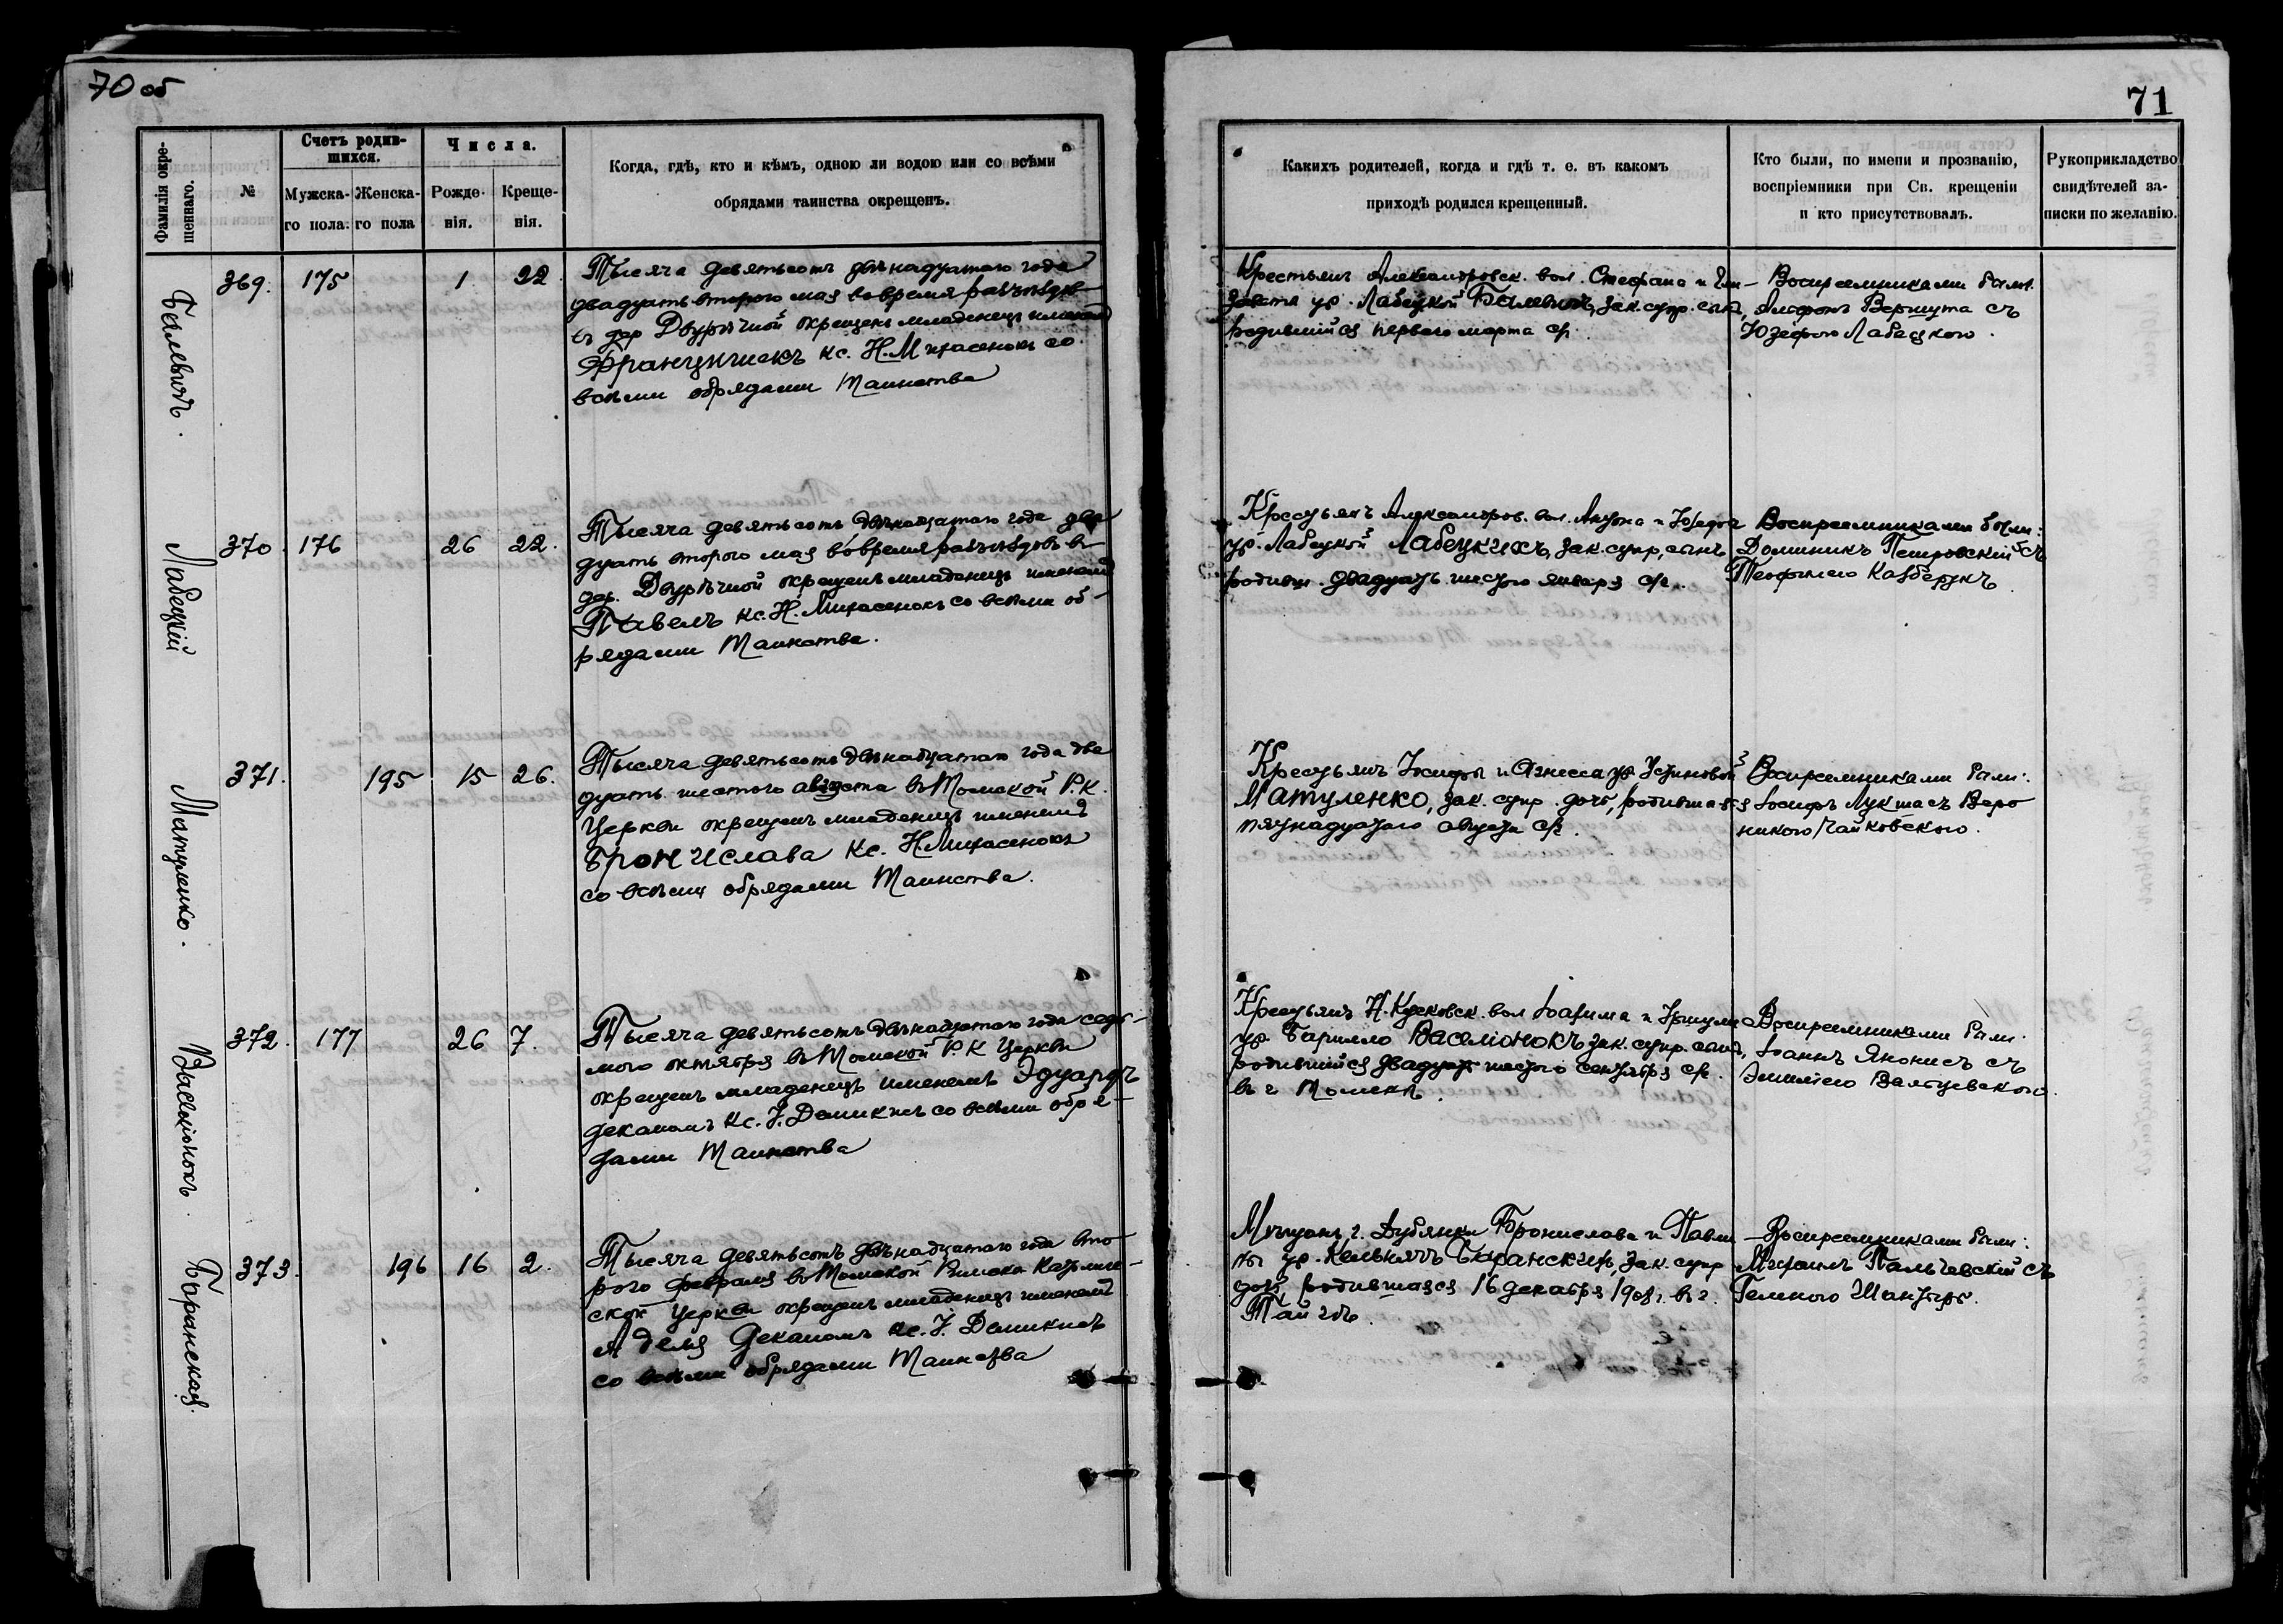 70 об
Фамилія окре-
щеннаго.
№
Счетъ родив-
шихся.
Мужска-
го пола.
Женска-
го пола
Числа.
Рожде-
нія.
Креще-
нія.
Когда, гдѣ, кто и кѣмъ, одною ли водою или со всѣми
обрядами таинства окрещенъ.
Балевичъ.
369. 175 1 22.
Тысяча девятьсотъ двѣнадцатаго года
двадцать второго мая во время разъѣздовъ
въ дер Двурѣчной окрещенъ младенецъ именемъ
Францишекъ кс. Н. Михасенокъ со
всѣми обрядами Таинства
Лабецкій
370. 176 26 22.
Тысяча девятьсотъ двѣнадцатаго года два
дцать второго мая во время разъѣздовъ въ
дер. Двурѣчной окрещенъ младенецъ именемъ
Павелъ кс. Н. Михасенокъ со всѣми об-
рядами Таинства.
Матуленко.
371. 195 15 26.
Тысяча девятьсотъ двѣнадцатаго года два
дцать шестого августа въ Томской Р. К.
Церкви окрещенъ младенецъ именемъ
Брониславa кс. Н. Михасенокъ
со всѣми обрядами Таинства.
Васлюнокъ.
372. 177 26 7.
Тысяча девятьсотъ двѣнадцатаго года седь-
мого октября въ Томской Р. К Церкви
окрещенъ младенецъ именемъ Эдуардъ
деканомъ кс. І. Демикисъ со всѣми обря-
дами Таинства
Баранская.
373. 196 16 2.
Тысяча девятьсотъ двѣнадцатаго года вто-
рого февраля въ Томской Римско Католиче-
ской Церкви окрещенъ младенецъ именемъ
Аделя Деканомъ кс. І. Демикисъ
со всѣми обрядами Таинства
71
Какихъ родителей, когда и гдѣ т. е. въ какомъ
приходѣ родился крещенный.
Кто были, по имени и прозванію,
воспріемники при Св. крещеніи
и кто присутствовалъ.
Рукоприкладство
свидѣтелей за-
писки по желанію.
Крестьянъ Александровск. вол. Стефана и Ели-
заветы ур. Лабецкой Балевичъ, зак. супр. сынъ,
родившійся перваго марта с/г.
Воспреемниками были
Вершута съ
Юзефою Лабецкою.
Крестьянъ Александров. вол. Антона и Юзефы
ур. Лабецкой Лабецкихъ, зак. супр. сынъ
родивш. двадцать шестого января с/г.
Воспреемниками были:
Доминикъ Петровскій съ
Теофилею Казберукъ.
Крестьянъ Іосифа и Агнесса ур Устиновой
Матуленко, зак. супр. дочь, родившаяся
пятнадцатого августа с/г.
Воспреемниками были:
Іосифъ Лукшасъ Веро
никою Чайковскою.
Крестьянъ Н. Кусковск. вол Іоахима и Уршули
ур. Барилло Васлюнокъ зак. супр. сынъ,
родившійся двадцать шестого сентября с/г.
въ г Томскѣ.
Воспреемниками были.
Іоаннъ Янонисъ съ
Эмиліею Валтуевскою.
Мѣщанъ г. Дубянки Бронислава и Павли-
ны ур. Баранскихъ, зак. супр
дочь родившаяся 16 декабря 1908 г. въ г.
Тайгѣ.
Воспреемниками были:
Михаилъ Пальчевскій съ
Геленою Шантыръ.